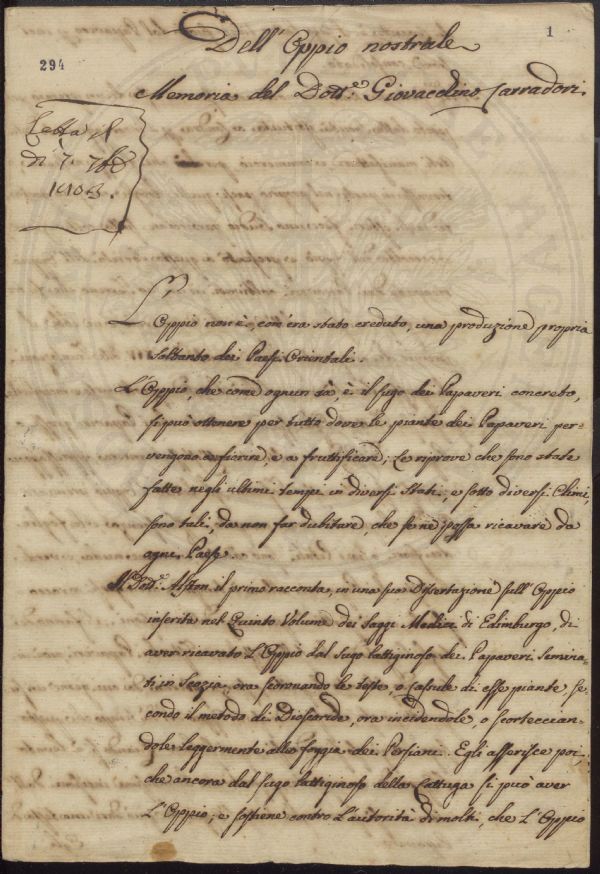 1
Dell'Oppio nostrale
294
Memoria del Dott.e Giovacchino Carradori.
Letta il
dì 7. 7bre
1803.
L'Oppio non è, com'era stato creduto, una produzione propria
soltanto dei Paesi Orientali.
L'Oppio, che come ognun sà, è il sugo dei Papaveri concreto,
si può ottenere per tutto dove le piante dei Papaveri per-
vengono a fiorire, e a fruttificare; Le riprove che sono state
fatte negli ultimi tempi in diversi Stati, e sotto diversi Climi,
sono tali, da non far dubitare, che se ne possa ricavare da
ogni Paese.
Il Dott.e Alston il primo racconta, in una sua Dissertazione sull'Oppio
inserita nel Quinto Volume dei Saggi Medici di Edimburgo, di
aver ricavato l'Oppio dal sugo lattiginoso dei Papaveri semina-
ti in Scozia, ora scoronando le teste, o casule di esse piante, se-
condo il metodo di Dioscoride, ora incidendole, o scorteccian-
dole leggermente alla foggia dei Persiani. Egli asserisce poi,
che ancora dal sugo lattiginoso della Lattuga si può aver
l'Oppio; e sostiene contro l'autorità di molti, che l'Oppio